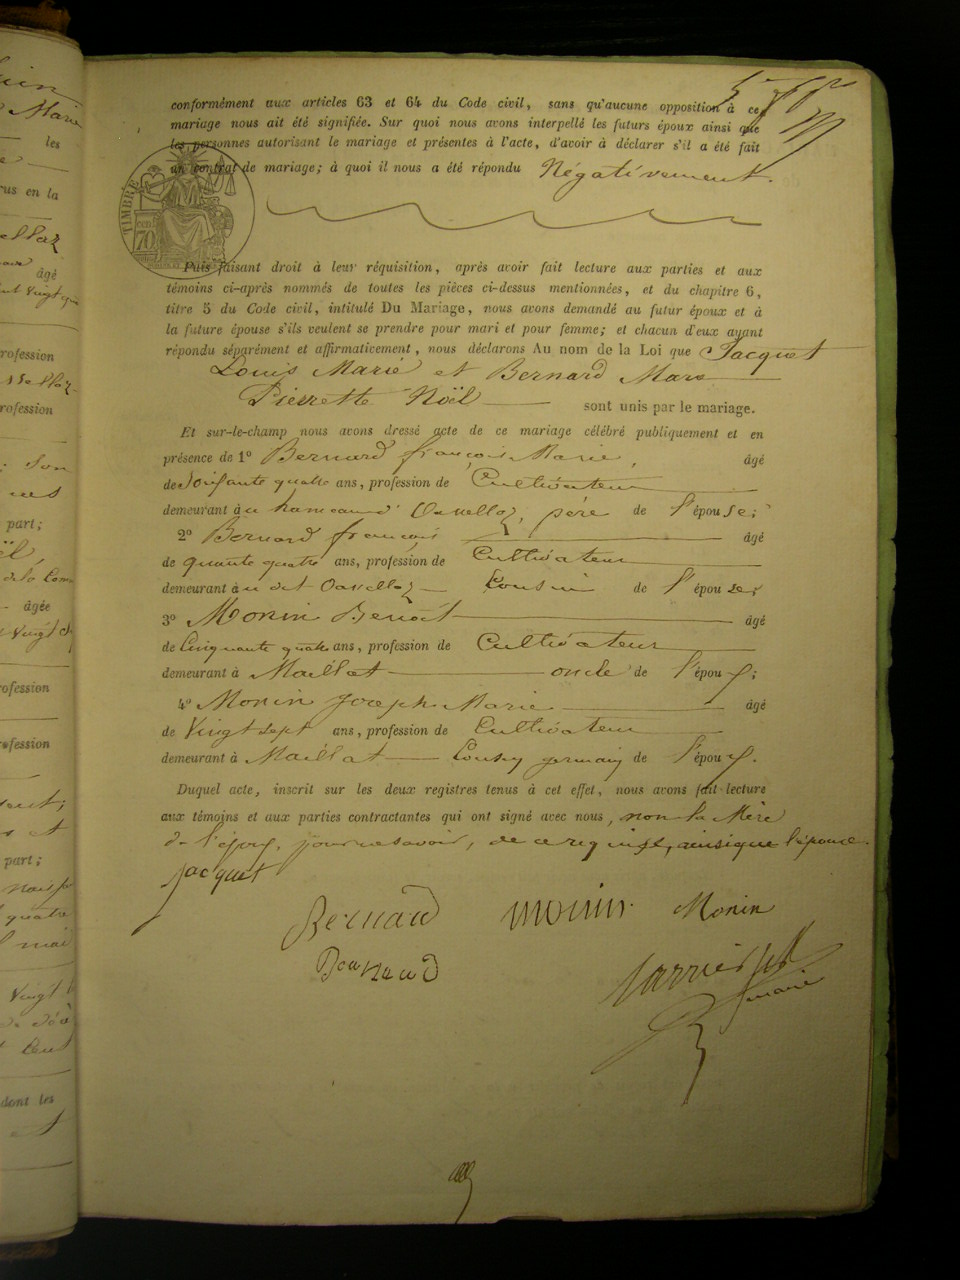 conformément aux articles 63 et 64 du Code civil, sans qu'aucune opposition à ce
mariage nous ait été signifiée. Sur quoi nous avons interpellé les futurs époux ainsi que
les personnes autorisant le mariage et présentes à l'acte, d'avoir à déclarer s'il a été fait
un contrat de mariage; à quoi il nous a été répondu Négativement.
TIMBRE
70
Puis faisant droit à leur réquisition, après avoir fait lecture aux parties et aux
témoins ci-après nommés de toutes les pièces ci-dessus mentionnées, et du chapitre 6,
titre 5 du Code civil, intitulé Du Mariage, nous avons demandé au futur époux et à
la future épouse s'ils veulent se prendre pour mari et pour femme; et chacun d'eux ayant
répondu séparément et affirmativement, nous déclarons Au nom de la Loi que Jacquet
Louis Marie et Bernard Marie
Pierrette Noël sont unis par le mariage.
Et sur-le-champ nous avons dressé acte de ce mariage célébré publiquement et en
présence de 1º Bernard françois Marie, âgé
de Soixante quatre ans, profession de Cultivateur
demeurant à u hameau d' père de l'épouse;
2º Bernard françois âgé
de quarante quatre ans, profession de Cultivateur
demeurant à u dit Cousin de l'épouse;
3º Monin Benoît âgé
de Cinquante quatre ans, profession de Cultivateur
demeurant à Maillat oncle de l'époux;
4º Monin Joseph Marie âgé
de Vingt sept ans, profession de Cultivateur
demeurant à Maillat Cousin germain de l'époux.
Duquel acte, inscrit sur les deux registres tenus à cet effet, nous avons fait lecture
aux témoins et aux parties contractantes qui ont signé avec nous, non la Mère
de l'époux, pour ne savoir, de ce requise, ainsi que l'épouse.
Jacquet
Bernard monin Monin
Bernard
maire